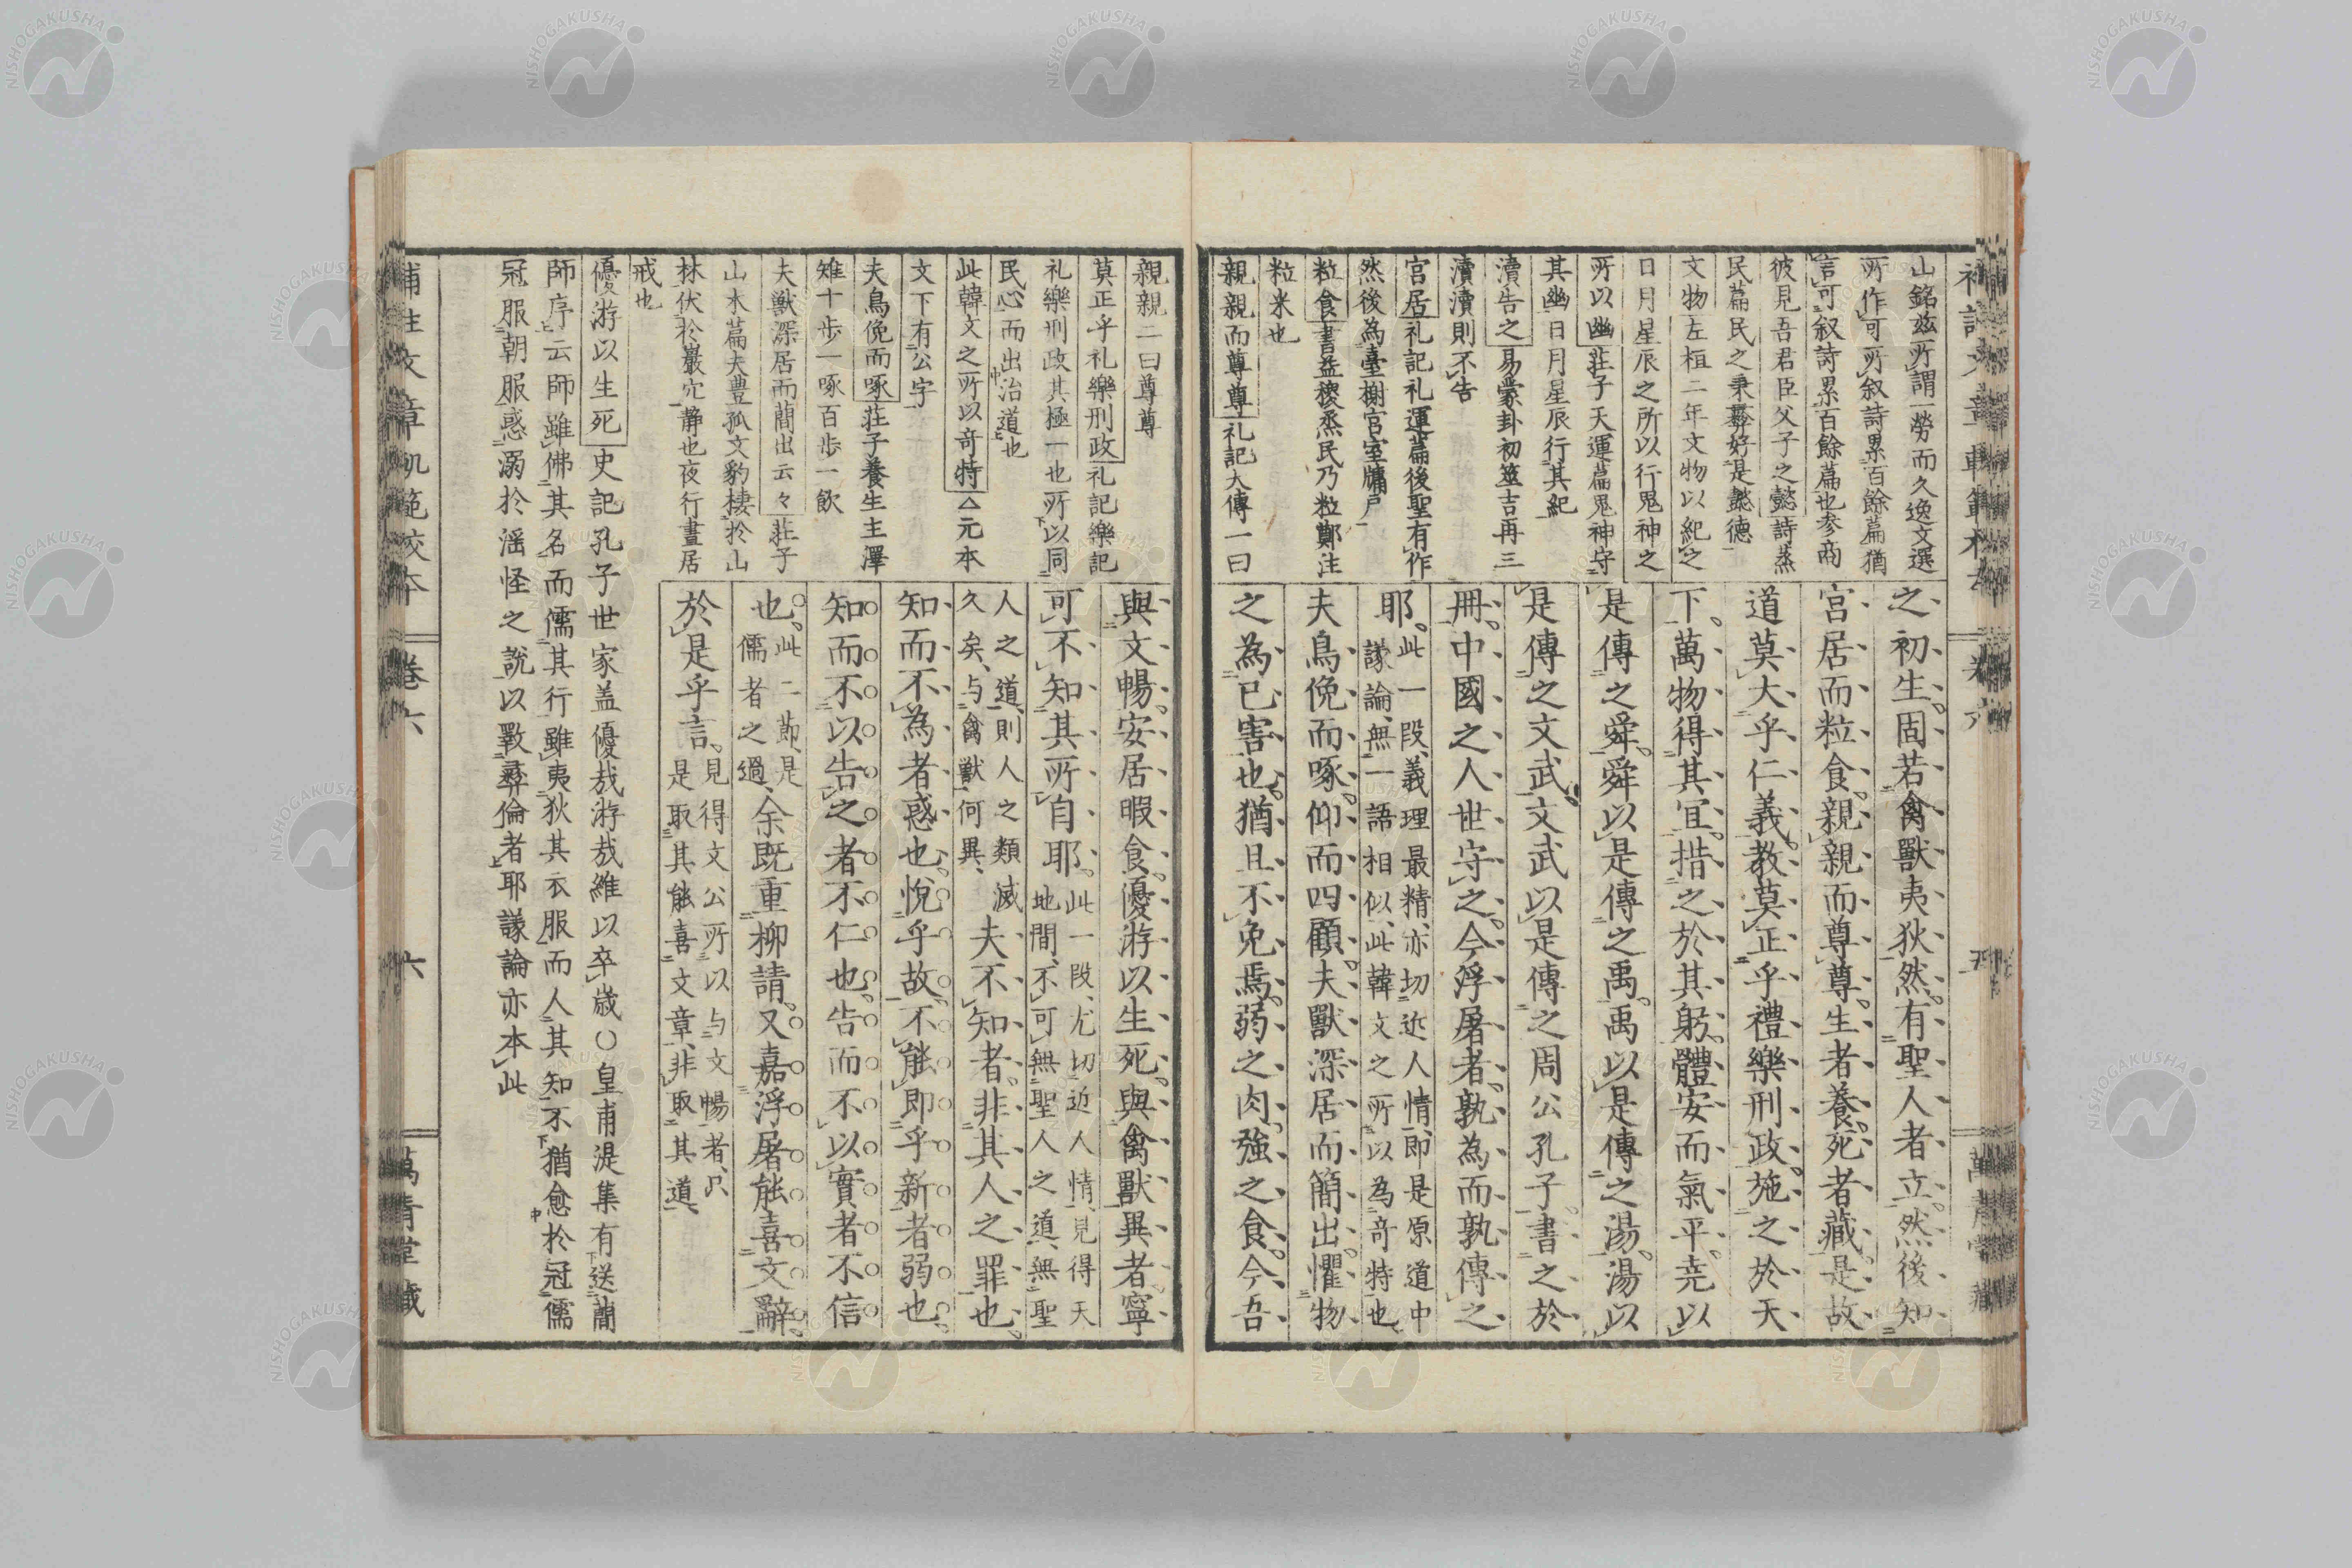 山銘茲所謂一勞而久逸文選
所作可所叙詩累百餘篇猶
言可叙詩累百餘篇也参商
彼見吾君臣父子之懿詩蒸
民篇民之秉彝好是懿德
文物左桓二年文物以紀之
日月星辰之所以行鬼神之
所以幽莊子天運篇鬼神守
其幽日月星辰行其紀
瀆告之易蒙卦初筮吉再三
瀆瀆則不告
宮居礼記礼運篇後聖有作
然後為臺榭宮室牖戶
粒食書益稷烝民乃粒鄭注
粒米也
親親而尊尊礼記大傳一曰
之初生固若禽獸夷狄然有聖人者立然後知
宮居而粒食親親而尊尊生者養死者藏是故
道莫大乎仁義教莫正乎禮樂刑政施之於天
下萬物得其宜措之於其躬體安而氣平尭以
是傳之舜舜以是傳之禹禹以是傳之湯湯以
是傳之文武文武以是傳之周公孔子書之於
冊中國之人世守之今浮屠者孰為而孰傳之
耶此一段義理最精亦切近人情即是原道中
議論無一語相似此韓文之所以為竒特也
夫鳥俛而啄仰而四顧夫獸深居而簡出懼物
之為己害也猶且不免焉弱之肉強之食今吾
親親二曰尊尊
莫正乎礼樂刑政礼記樂記
礼樂刑政其極一也所以同
民心而出治道也
此韓文之所以竒特△元本
文下有公字
夫鳥俛而啄莊子養生主澤
雉十歩一啄百歩一飲
夫獸深居而簡出云々莊子
山木篇夫豊孤文豹棲於山
林伏於巖穴静也夜行晝居
戒也
與文暢安居暇食優游以生死與禽獸異者寧
可不知其所自耶此一段尤切近人情見得天
地間不可無聖人之道無聖
人之道則人之類滅
久矣与禽獸何異夫不知者非其人之罪也
知而不為者惑也悅乎故不能即乎新者弱也
知而不以告之者不仁也告而不以實者不信
也此二節是
儒者之過余既重柳請又嘉浮屠能喜文辭
於是乎言見得文公所以与文暢者只
是取其能喜文章非取其道
優游以生死史記孔子世家盖優哉游哉維以卒歳○皇甫湜集有送簡
師序云師雖佛其名而儒其行雖夷狄其衣服而人其知不猶愈於冠儒
冠服朝服惑溺於滛怪之說以斁彝倫者耶議論亦本此
補註文章軌範校本
卷六
六
萬青堂藏
NISHOGAKUSHA